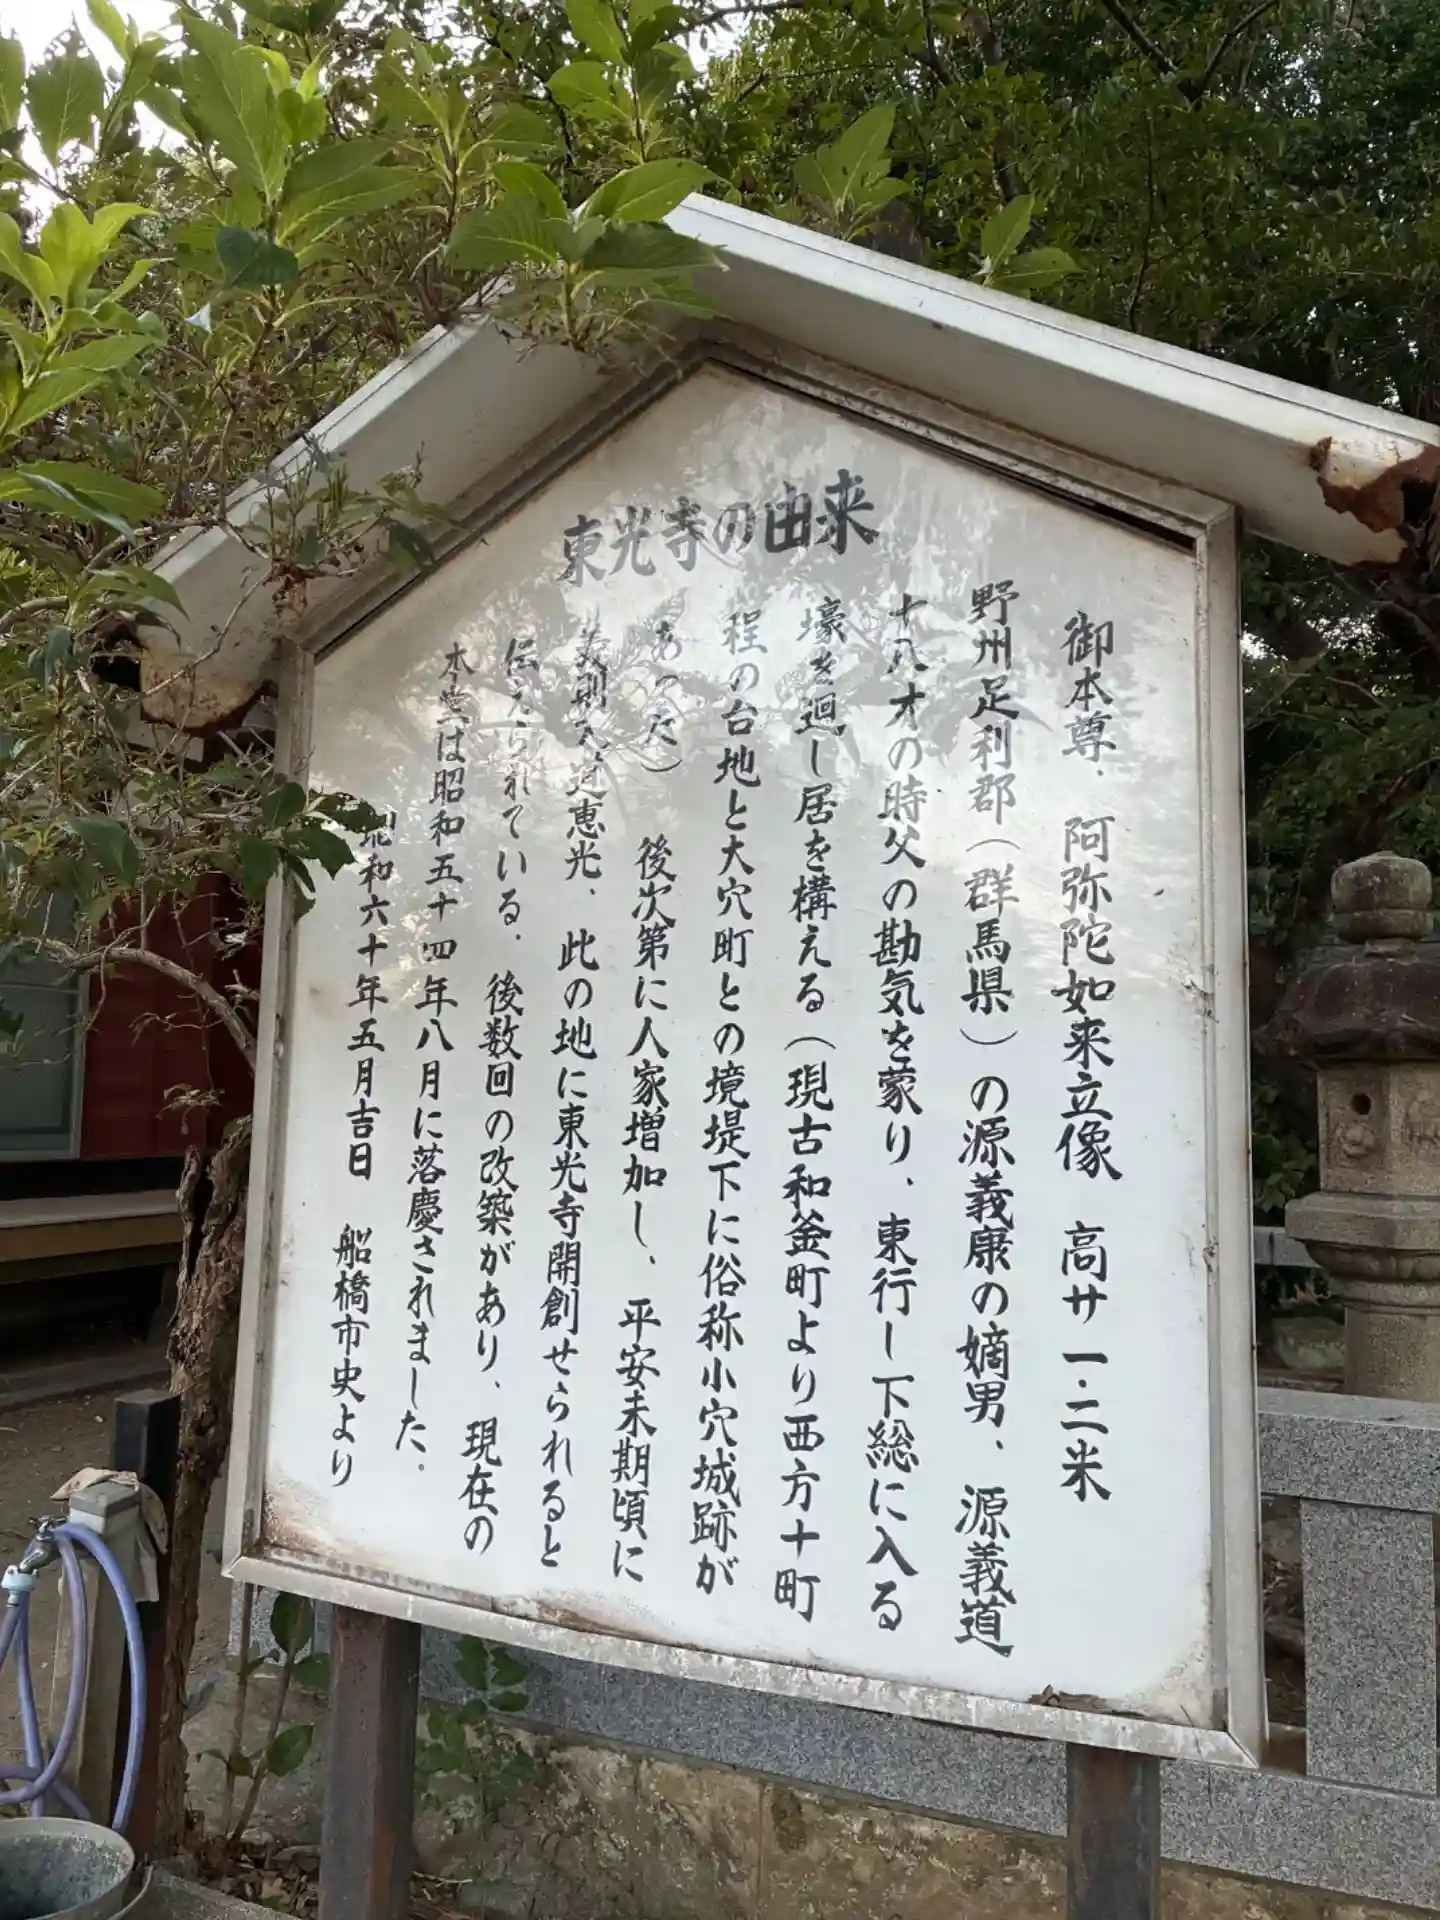 東光寺の由来
御本尊、阿弥陀如来立像 高サ一・二米
野州足利郡（群馬県）の源義康の嫡男、源義道
十八才の時父の勘気を蒙り、東行し下総に入る
壕を廻し居を構える（現古和釜町より西方十町
程の台地と大穴町との境堤下に俗称小穴城跡が
あった） 後次第に人家増加し、平安末期頃に
義則入道恵光、此の地に東光寺開創せられると
伝えられている。後数回の改築があり、現在の
本堂は昭和五十四年八月に落慶されました。
昭和六十年五月吉日 船橋市史より